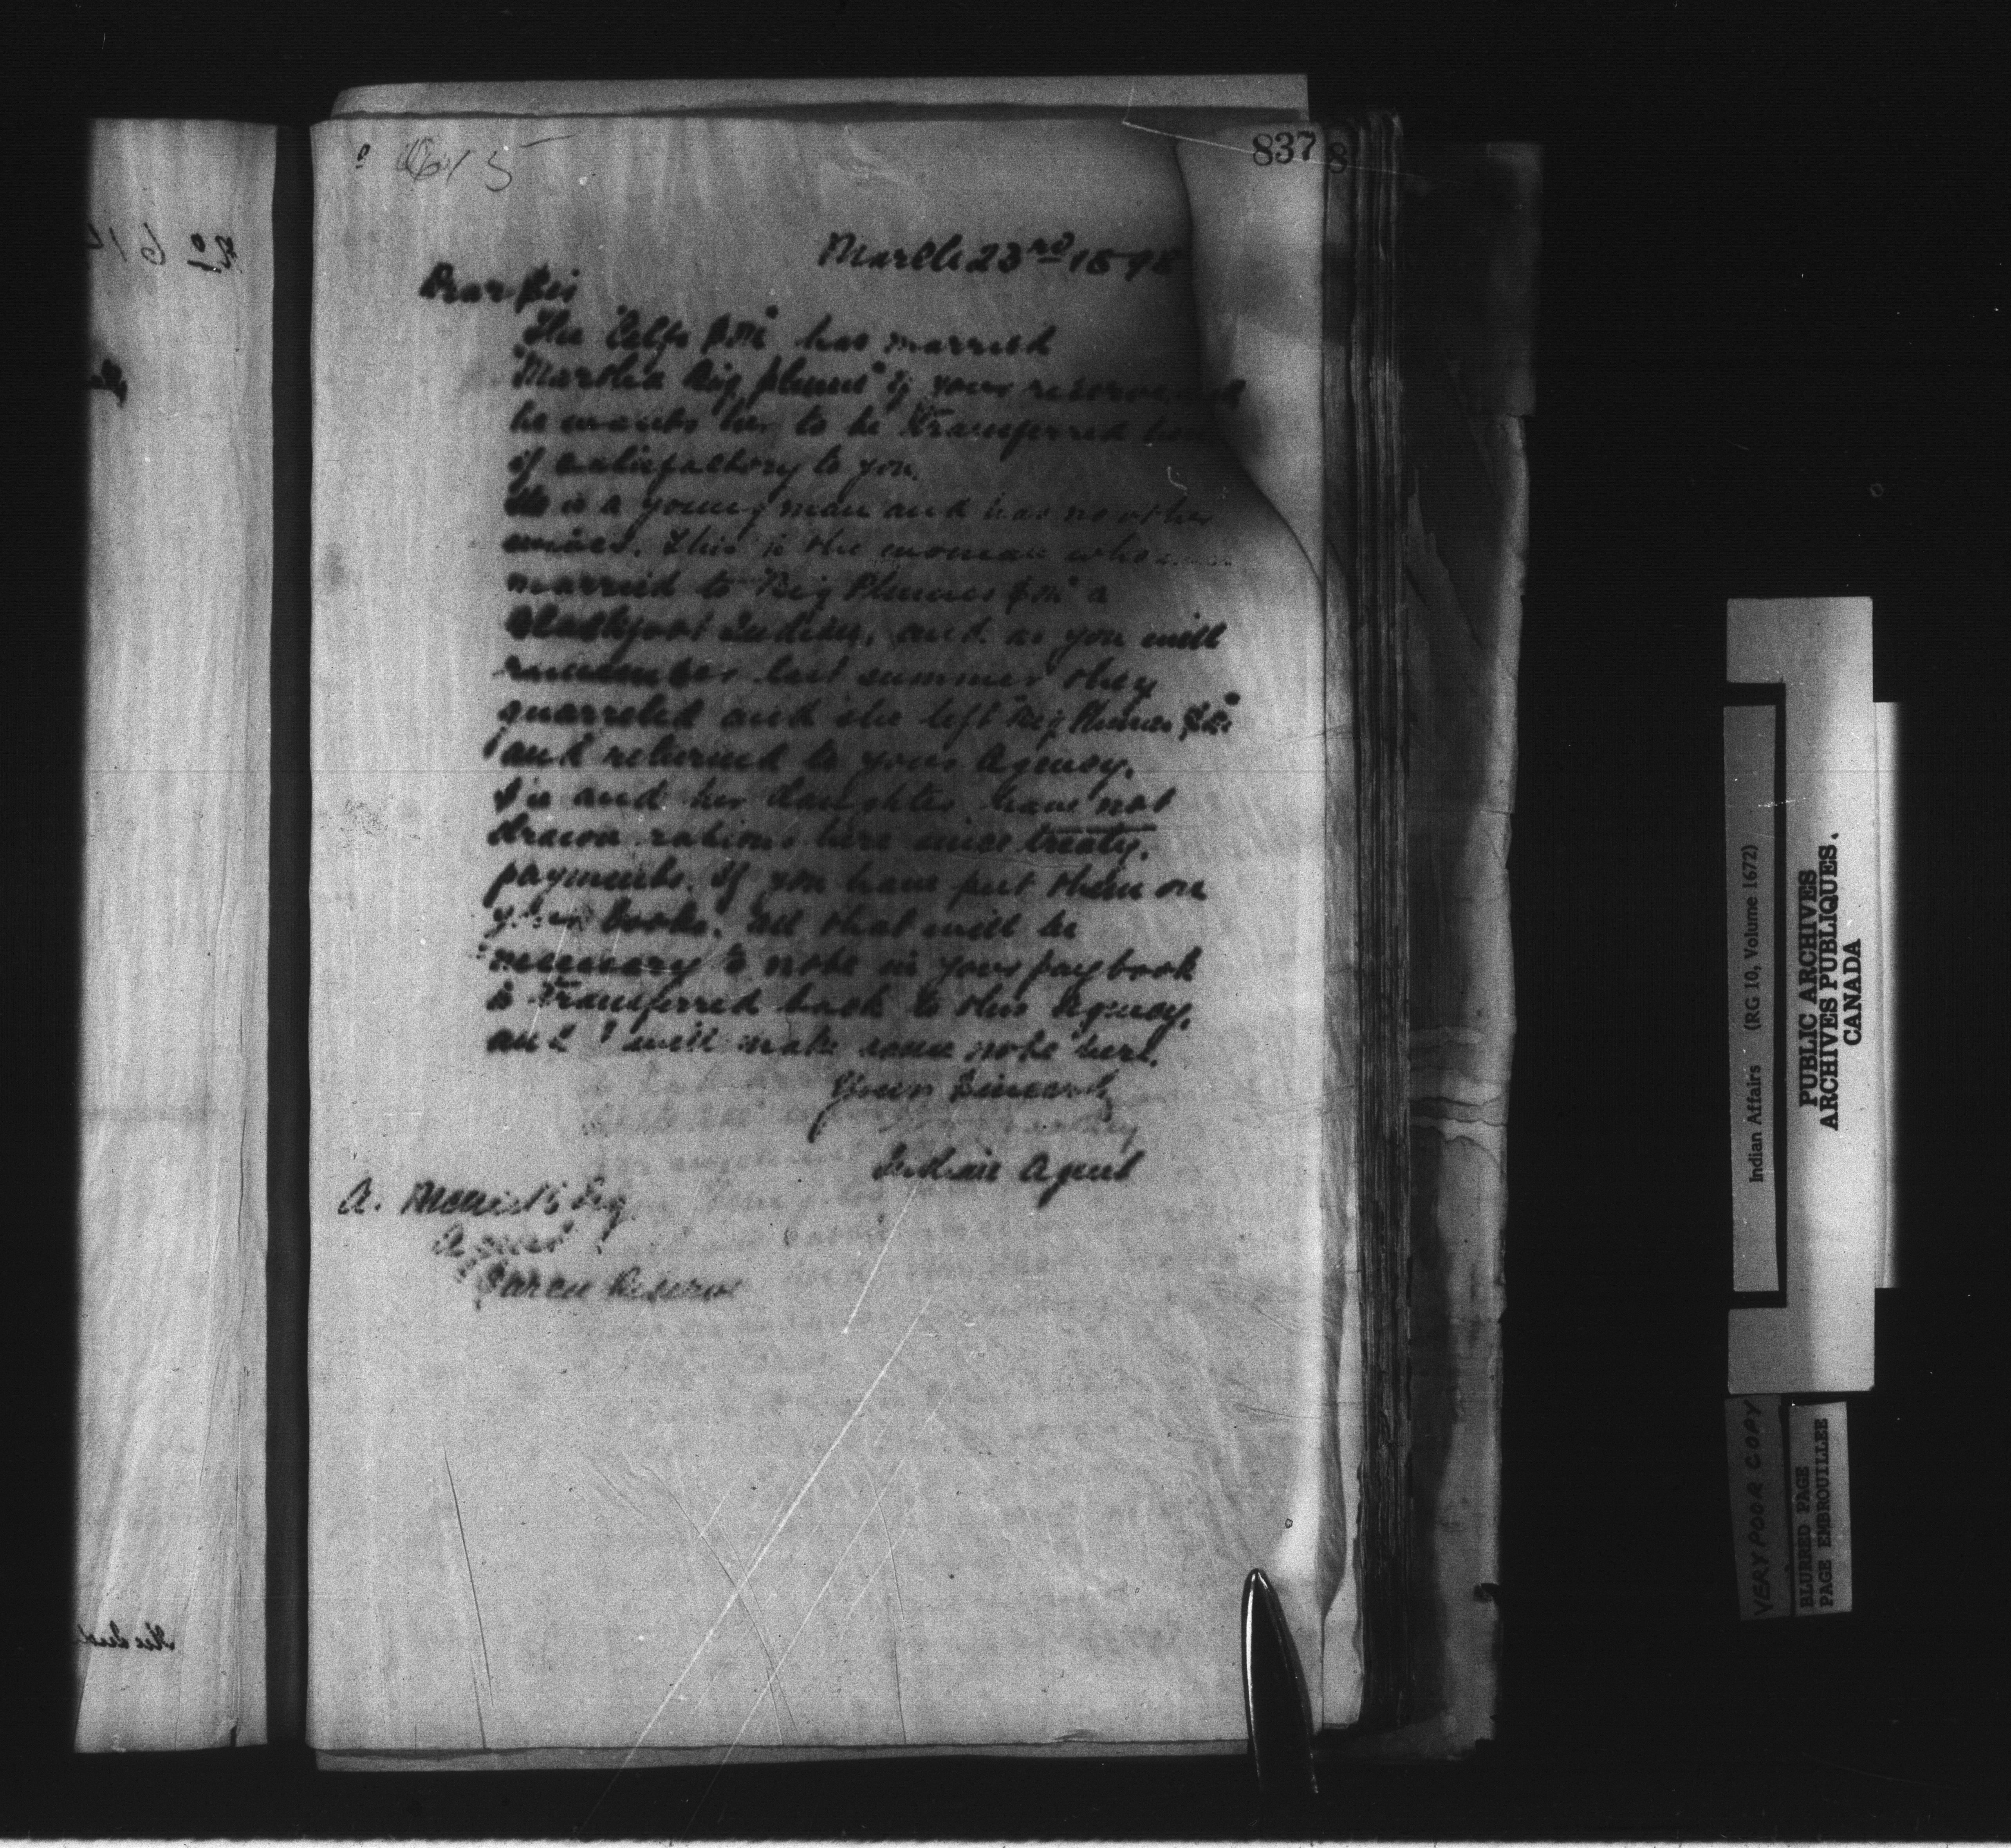 615
837
8
March 23rd 1898
Dear Sir
The Calfs Son" has married
"Martha Big plume" of your reserve, and
he wants her to be transferred here
if satisfactory to you.
He is a young man and has no other
wives. This is the woman who
married to "Big Plumes Son" a
Blackfoot Indian, and as you will
remember last summer they
quarreled and she left "Big Plumes Son"
and returned to your Agency.
She and her daughter have not
drawn rations here since treaty.
payments. If you have put them on
your books. All that will be
necessary to note in your pay book
is transferred back to this Agency,
and I will make same note here.
Yours Sincerely
Indian Agent
A. Esq
Agent
Sarcee Reserve
No 61
Indian Affairs (RG 10, Volume 1672)
PUBLIC ARCHIVES
ARCHIVES PUBLIQUES.
CANADA
VERY POOR COPY
BLURRED PAGE
PAGE EMBROUILLEE